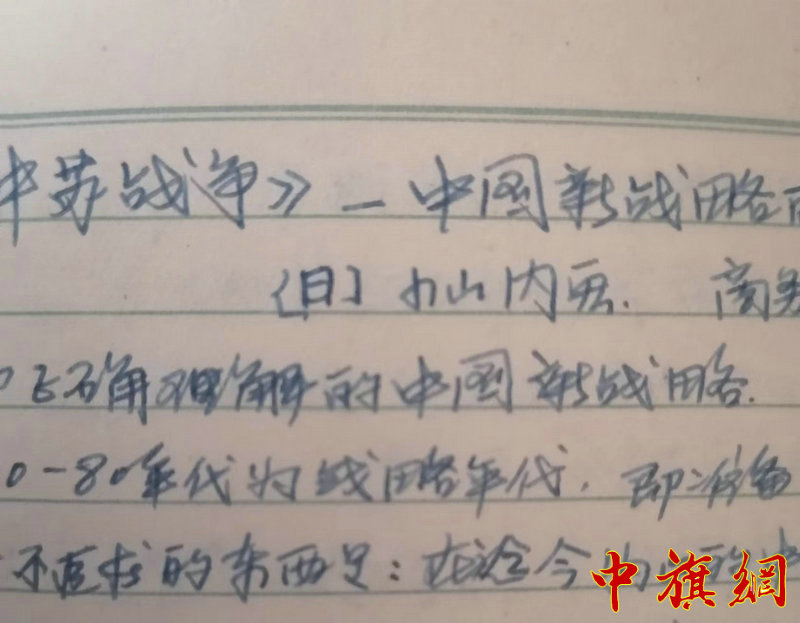 中苏战争》—中国新战略
〔日〕小山内宏. 商务
正确理解的中国新战略.
0-80年代为战略年代. 即准备
不追求的东西是: 在论今
中旗網